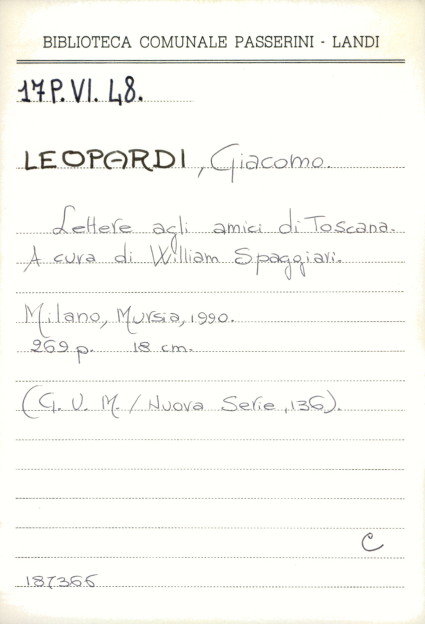 BIBLIOTECA COMUNALE PASSERINI - LANDI
17P.VI.48.
LEOPARDI, Giacomo.
Lettere agli amici di Toscana.
A cura di William Spaggiari.
Milano, Mursia, 1990.
269 p. 18 cm.
(G. U. M. / Nuova Serie, 136).
C
187366